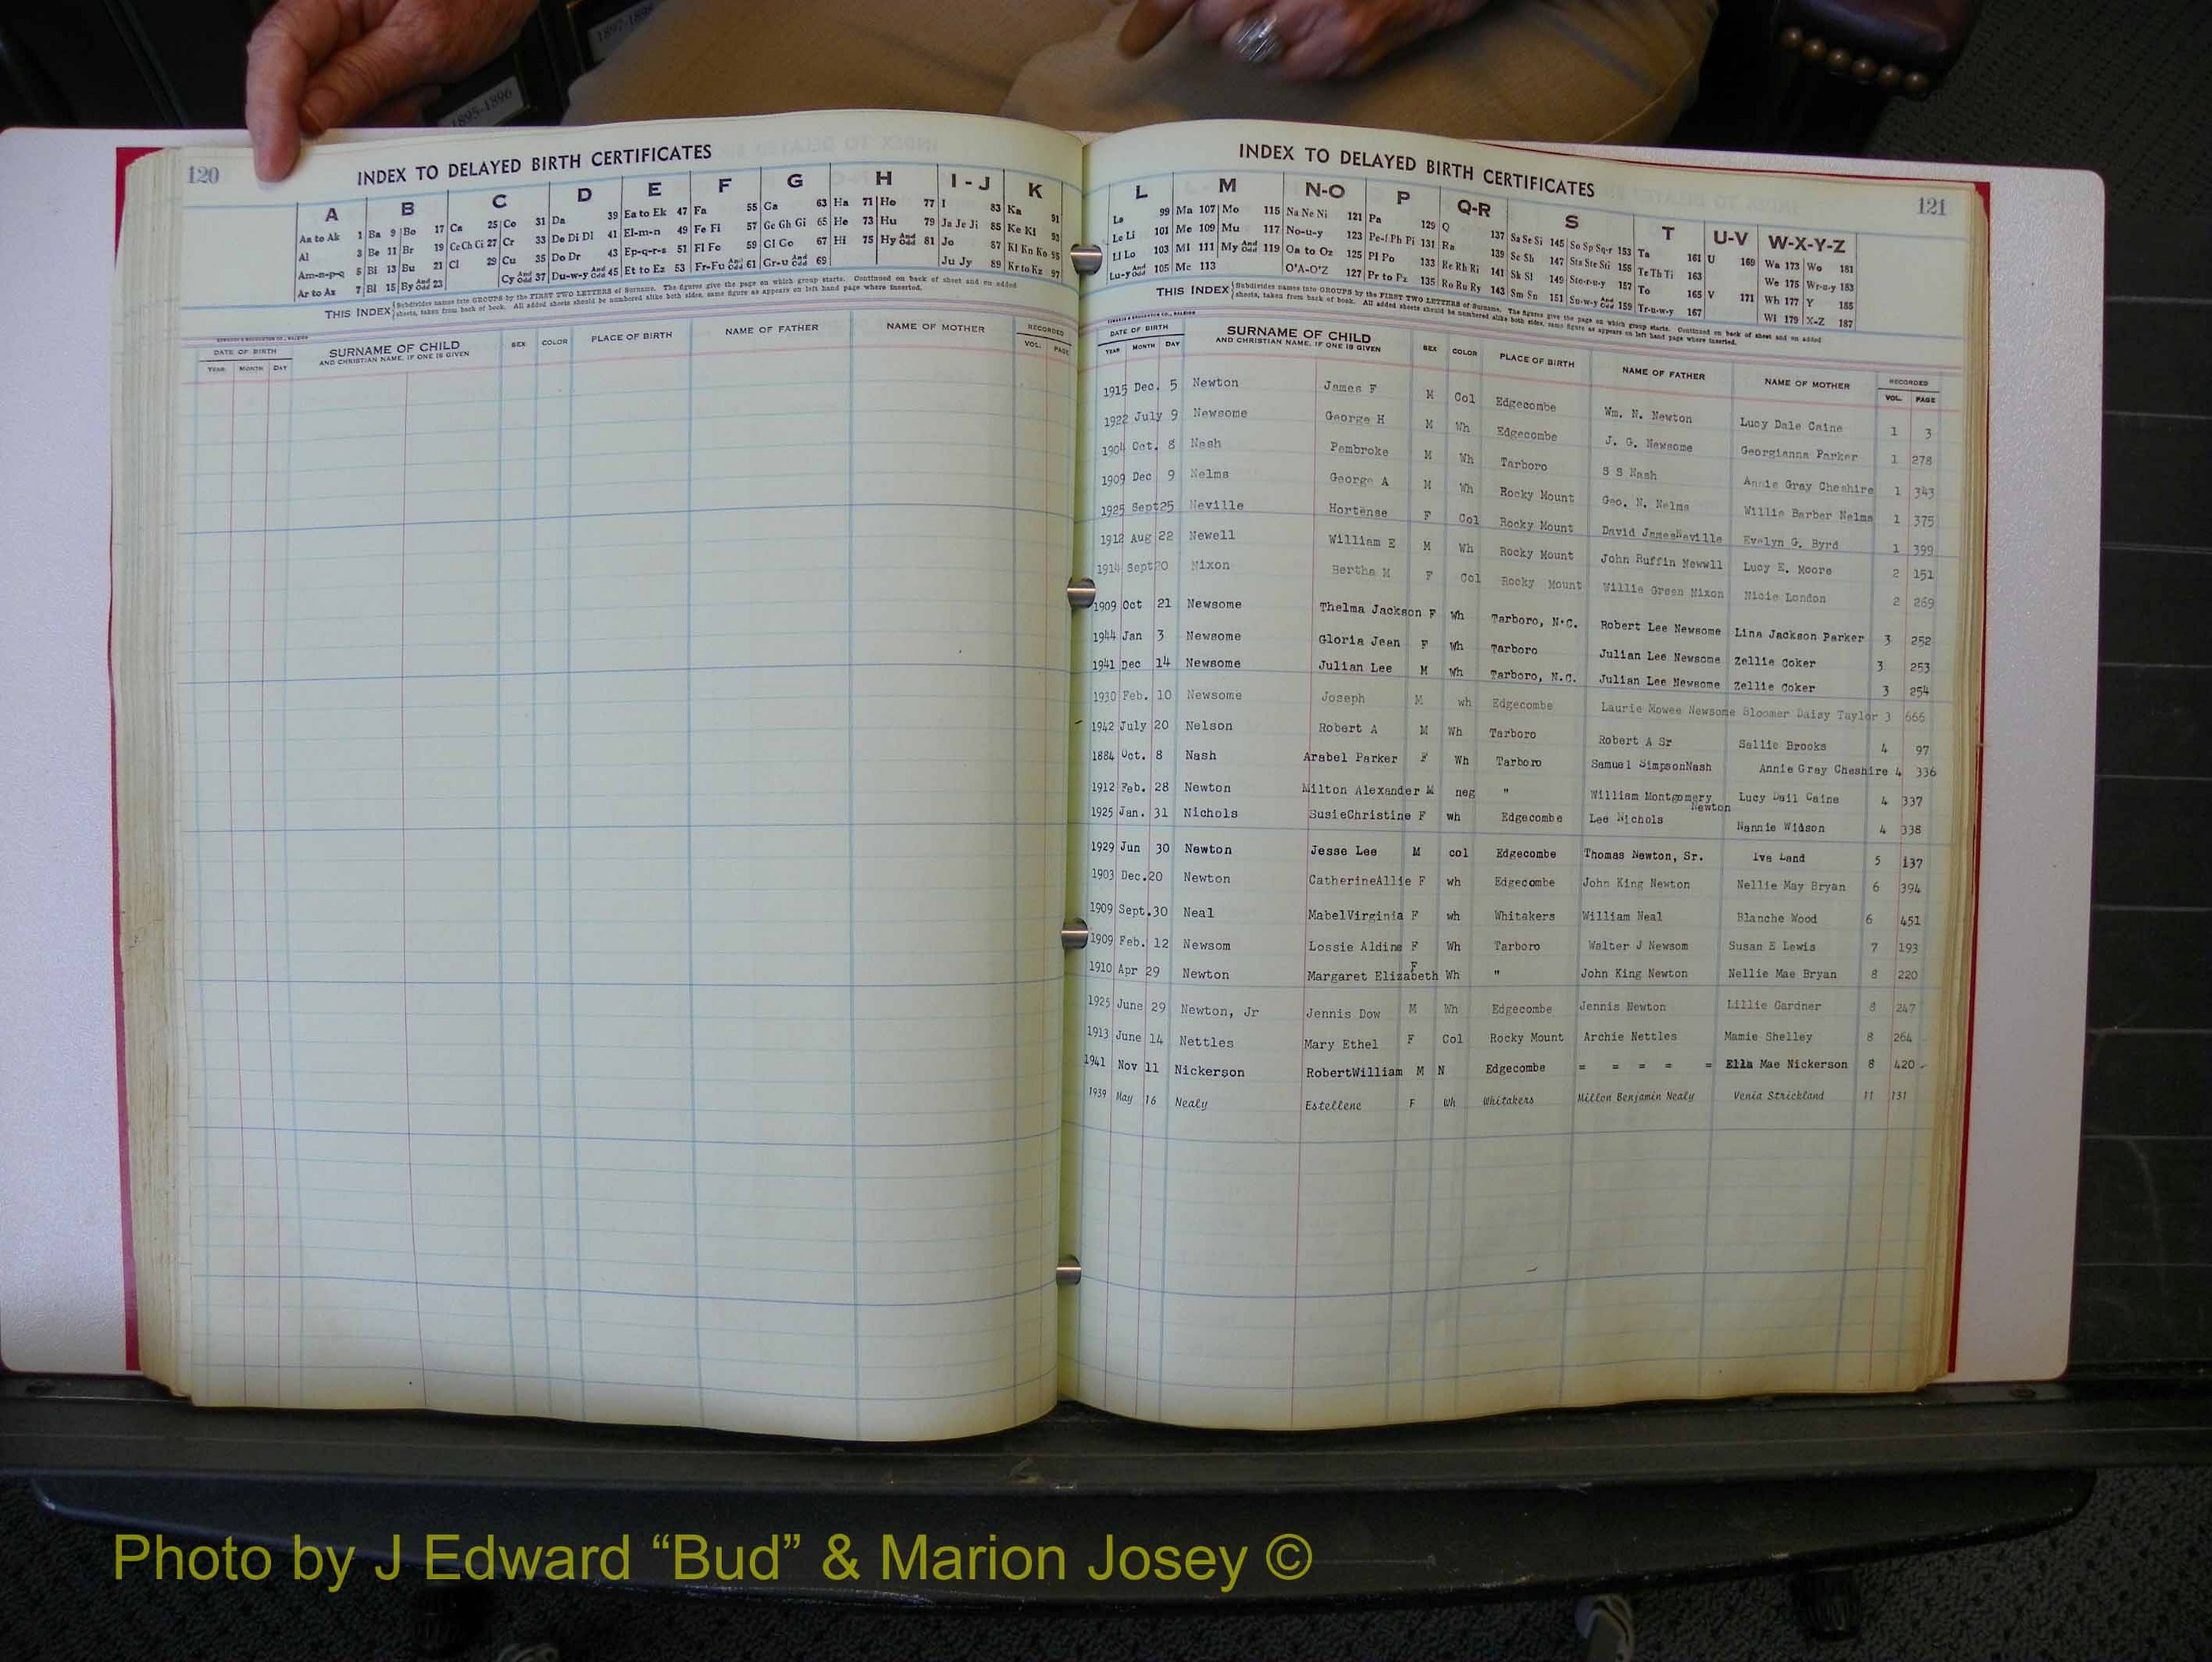 1897-1898
1895-1896
120
INDEX TO DELAYED BIRTH CERTIFICATES
A B C D E F G H I - J K
Aa to Ak 1 Ba 9 Bo 17 Ca 25 Co 31 Da 39 Ea to Ek 47 Fa 55 Ga 63 Ha 71 Ho 77 I 83 Ka 91
Al 3 Be 11 Br 19 Ce Ch Ci 27 Cr 33 De Di Dl 41 El-m-n 49 Fe Fi 57 Ge Gh Gi 65 He 73 Hu 79 Ja Je Ji 85 Ke Ki 93
Am-n-p-q 5 Bi 13 Bu 21 Cl 29 Cu 35 Do Dr 43 Ep-q-r-s 51 Fl Fo 59 Gl Go 67 Hi 75 Hy And Odd 81 Jo 87 Kl Kn Ko 95
Ar to Az 7 Bl 15 By And Odd 23 Cy And Odd 37 Du-w-y And Odd 45 Et to Ez 53 Fr-Fu And Odd 61 Gr-u And Odd 69 Ju Jy 89 Kr to Kz 97
THIS INDEX Subdivides names into GROUPS by the FIRST TWO LETTERS of Surname. The figures give the page on which group starts. Continued on back of sheet and on added
sheets, taken from back of book. All added sheets should be numbered alike both sides, same figure as appears on left hand page where inserted.
DATE OF BIRTH SURNAME OF CHILD SEX COLOR PLACE OF BIRTH NAME OF FATHER NAME OF MOTHER RECORDED
YEAR MONTH DAY AND CHRISTIAN NAME, IF ONE IS GIVEN VOL. PAGE
INDEX TO DELAYED BIRTH CERTIFICATES
121
L M N-O P Q-R S T U-V W-X-Y-Z
La 99 Ma 107 Mo 115 Na Ne Ni 121 Pa 129 Q 137 Sa Se Si 145 So Sp Sq-r 153 Ta 161 U 169 Wa 173 Wo 181
Le Li 101 Me 109 Mu 117 No-u-y 123 Pe-f Ph Pi 131 Ra 139 Sc Sh 147 Sta Ste Sti 155 Te Th Ti 163 We 175 Wr-u-y 183
Ll Lo 103 Mi 111 My And Odd 119 Oa to Oz 125 Pl Po 133 Re Rh Ri 141 Sk Sl 149 Sto-r-u-y 157 To 165 V 171 Wh 177 Y 185
Lu-y And Odd 105 Mc 113 O'A-O'Z 127 Pr to Pz 135 Ro Ru Ry 143 Sm Sn 151 Su-w-y And Odd 159 Tr-u-w-y 167 Wi 179 X-Z 187
THIS INDEX Subdivides names into GROUPS by the FIRST TWO LETTERS of Surname. The figures give the page on which group starts. Continued on back of sheet and on added
sheets, taken from back of book. All added sheets should be numbered alike both sides, same figure as appears on left hand page where inserted.
DATE OF BIRTH SURNAME OF CHILD SEX COLOR PLACE OF BIRTH NAME OF FATHER NAME OF MOTHER RECORDED
YEAR MONTH DAY AND CHRISTIAN NAME, IF ONE IS GIVEN VOL. PAGE
1915 Dec. 5 Newton James F M Col Edgecombe Wm. N. Newton Lucy Dale Caine 1 3
1922 July 9 Newsome George H M Wh Edgecombe J. G. Newsome Georgianna Parker 1 278
1904 Oct. 8 Nash Pembroke M Wh Tarboro S S Nash Annie Gray Cheshire 1 343
1909 Dec 9 Nelms George A M Wh Rocky Mount Geo. N. Nelms Willie Barber Nelms 1 375
1925 Sept 25 Neville Hortense F Col Rocky Mount David James Neville Evelyn G. Byrd 1 399
1912 Aug 22 Newell William E M Wh Rocky Mount John Ruffin Newwll Lucy E. Moore 2 151
1914 Sept 20 Nixon Bertha M F Col Rocky Mount Willie Green Nixon Nicie London 2 269
1909 Oct 21 Newsome Thelma Jackson F Wh Tarboro, N.C. Robert Lee Newsome Lina Jackson Parker 3 252
1944 Jan 3 Newsome Gloria Jean F Wh Tarboro Julian Lee Newsome Zellie Coker 3 253
1941 Dec 14 Newsome Julian Lee M Wh Tarboro, N.C. Julian Lee Newsome Zellie Coker 3 254
1930 Feb. 10 Newsome Joseph M wh Edgecombe Laurie Mowee Newsome Bloomer Daisy Taylor 3 666
1942 July 20 Nelson Robert A M Wh Tarboro Robert A Sr Sallie Brooks 4 97
1884 Oct. 8 Nash Arabel Parker F Wh Tarboro Samuel SimpsonNash Annie Gray Cheshire 4 336
1912 Feb. 28 Newton Milton Alexander M neg " William Montgomery Newton Lucy Dail Caine 4 337
1925 Jan. 31 Nichols SusieChristine F wh Edgecombe Lee Nichols Nannie Widson 4 338
1929 Jun 30 Newton Jesse Lee M col Edgecombe Thomas Newton, Sr. Iva Land 5 137
1903 Dec.20 Newton CatherineAllie F wh Edgecombe John King Newton Nellie May Bryan 6 394
1909 Sept.30 Neal MabelVirginia F wh Whitakers William Neal Blanche Wood 6 451
1909 Feb. 12 Newsom Lossie Aldine F Wh Tarboro Walter J Newsom Susan E Lewis 7 193
1910 Apr 29 Newton Margaret Elizabeth F Wh " John King Newton Nellie Mae Bryan 8 220
1925 June 29 Newton, Jr Jennis Dow M Wh Edgecombe Jennis Newton Lillie Gardner 8 247
1913 June 14 Nettles Mary Ethel F Col Rocky Mount Archie Nettles Mamie Shelley 8 264
1941 Nov 11 Nickerson RobertWilliam M N Edgecombe = = = = = Ella Mae Nickerson 8 420
1939 May 16 Nealy Estellene F Wh Whitakers Millon Benjamin Nealy Venia Strickland 11 131
Photo by J Edward “Bud” & Marion Josey ©